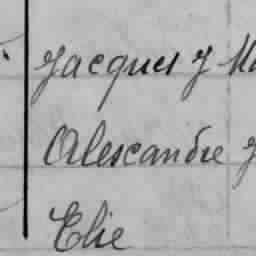 Jacques J M
Alexcandre J
Elie